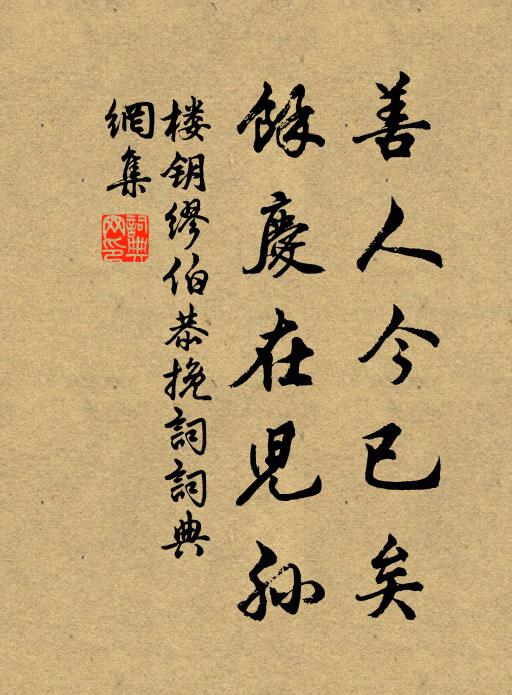 善人今已矣
餘慶在兒孙
楼钥缪伯恭挽詞詞典
網集
詞典
网印